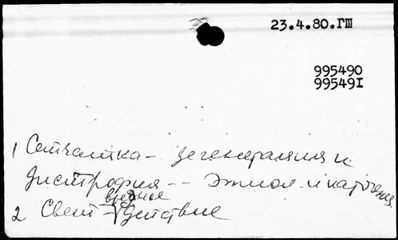 23.4.80.ГШ
995490
995491
1 Сетчатка - дегенерация и
дистрофия -- этиол. и патогенез.
вредное
2 Свет - V действие